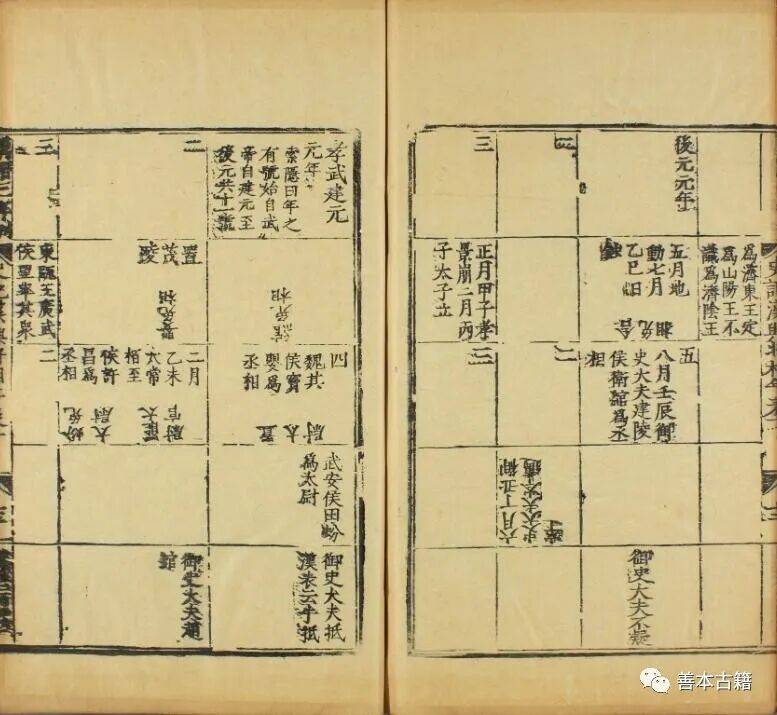 爲濟東王定
爲山陽王不
識爲濟陰王
後元元年
五月地
動七月
乙巳日
五
八月壬辰御
史大夫建陵
侯衛綰爲丞
相
御史大夫不疑
二
二
六月丁丑御
三
正月甲子孝
景崩二月丙
子太子立
三
孝武建元
元年
索隱曰年之
有號始自武
帝自建元至
後元共十一號
綰免相
四
魏其
侯竇
嬰爲
丞相
置太尉
武安侯田蚡
爲太尉
御史大夫抵
漢表云牛抵
二
置茂
陵
嬰免相
二月
乙未
太常
柏至
侯許
昌爲
丞相
蚡免太尉
罷太尉官
御史大夫趙
綰
三
東甌王廣武
侯望率其衆
二
善本古籍